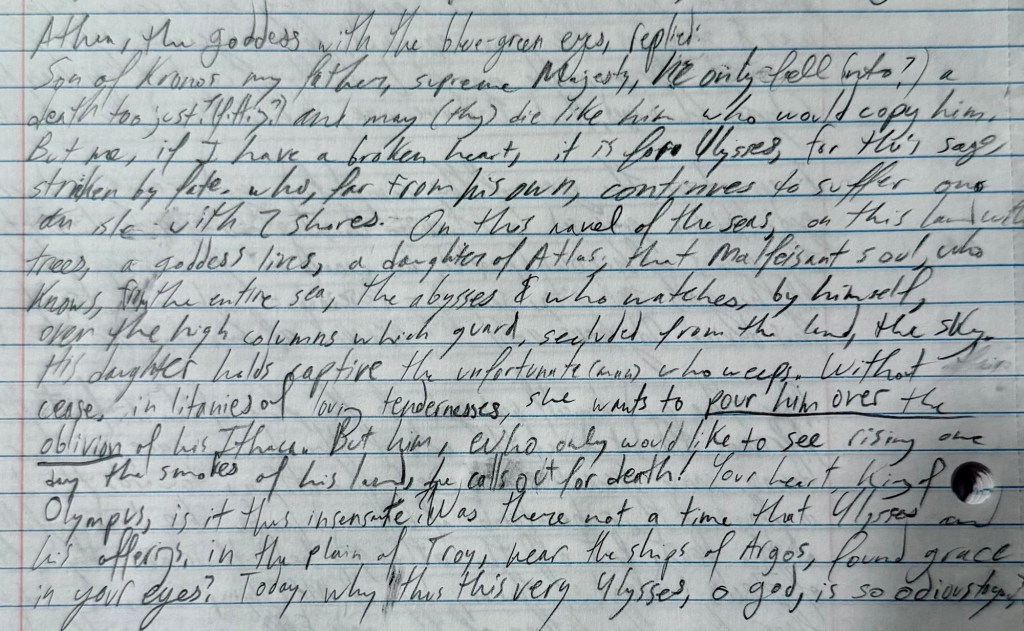 Athena, the goddess with the blue-green eyes, replied:
Son of Kronos my father, supreme Majesty, he only fell (into?) a
death too just! (fitting?) and may (they) die like him who would copy him.
But me, if I have a broken heart, it is for Ulysses, for this sage,
stricken by fate, who, far from his own, continues to suffer on
an isle with 2 shores. On this navel of the seas, on this land with
trees, a goddess lives, a daughter of Atlas, that Malfeisant soul, who
knows, from the entire sea, the abysses & who watches, by himself,
over the high columns which guard, secluded from the land, the sky.
His daughter holds captive the unfortunate (man) who weeps. Without
cease, in litanies of loving tendernesses, she wants to pour him over the
oblivion of his Ithaca. But him, who only would like to see rising one
day the smokes of his land, he calls out for death! Your heart, King of
Olympus, is it thus insensate? Was there not a time that Ulysses and
his offerings, in the plain of Troy, near the ships of Argos, found grace
in your eyes? Today, why thus this very Ulysses, o god, is so odious to you?